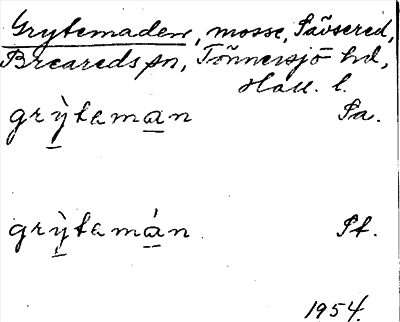 Grytemaden, mosse, Sävsered,
Breareds sn, Tönnersjö hd,
Hall. l.
grỳtaman Sa.
grỳtamán St.
1954.